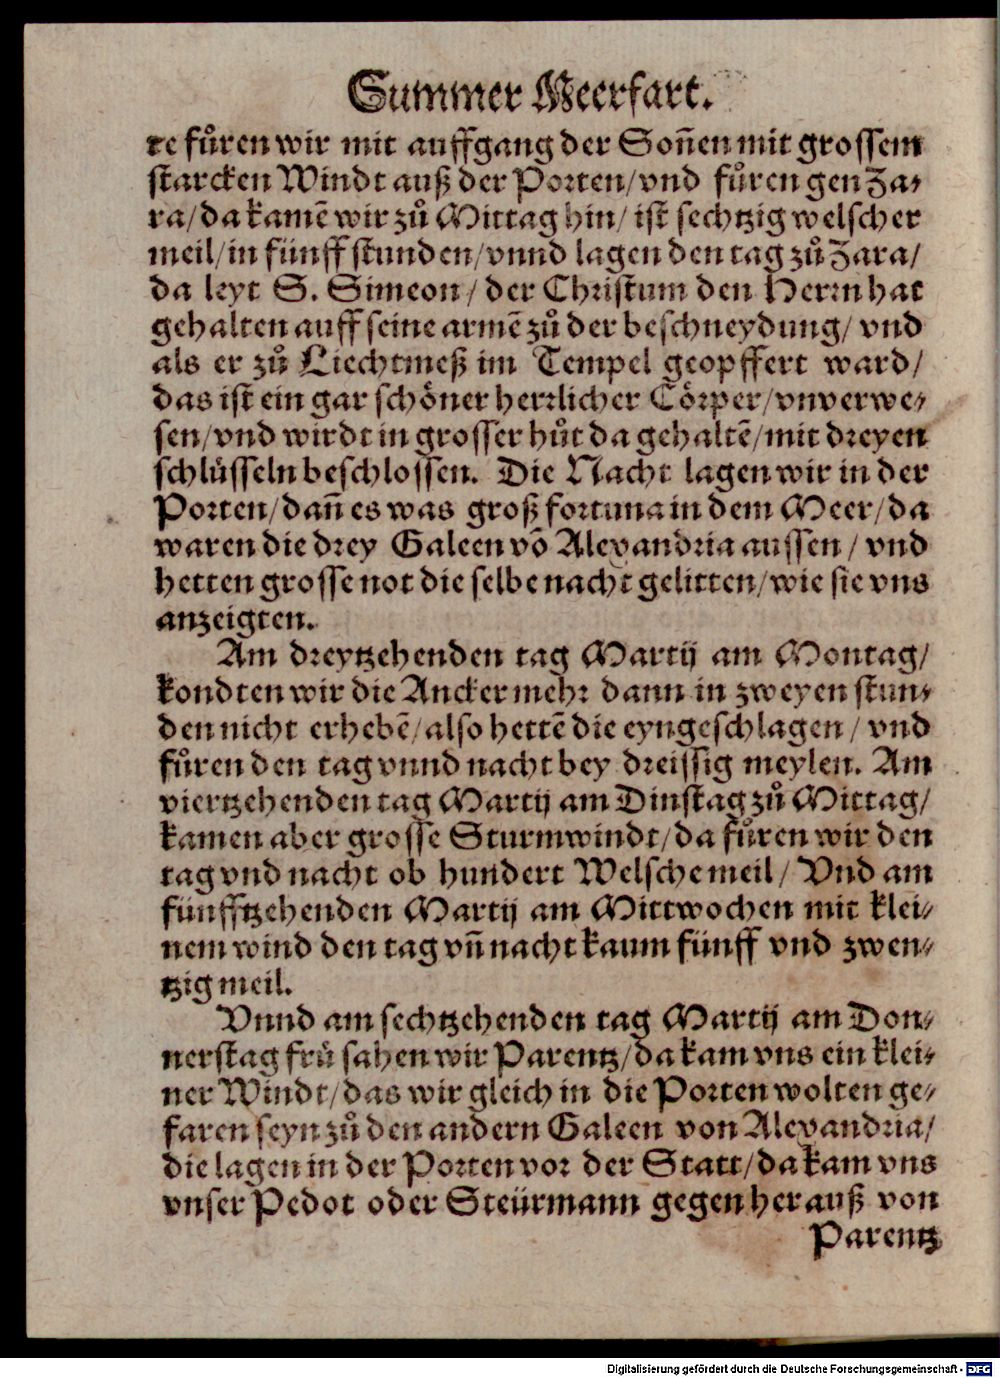 Summer Meerfart.
re fůren wir mit auffgang der Soñen mit grossem
starcken Windt auß der Porten/vnd fůren gen Za-
ra/da kamē wir zů Mittag hin/ist sechtzig welscher
meil/in fünff stunden/vnnd lagen den tag zů Zara/
da leyt S. Simeon/der Christum den Herrn hat
gehalten auff seine armē zů der beschneydung/vnd
als er zů Liechtmeß im Tempel geopffert ward/
das ist ein gar schöner herrlicher Cörper/vnverwe-
sen/vnd wirdt in grosser hůt da gehaltē/mit dreyen
schlüsseln beschlossen. Die Nacht lagen wir in der
Porten/dañ es was groß fortuna in dem Meer/da
waren die drey Galeen vō Alexandria aussen/vnd
hetten grosse not die selbe nacht gelitten/wie sie vns
anzeigten.
Am dreytzehenden tag Martij am Montag/
kondten wir die Ancker mehr dann in zweyen stun-
den nicht erhebē/also hettē die eyngeschlagen/vnd
fůren den tag vnnd nacht bey dreissig meylen. Am
viertzehenden tag Martij am Dinstag zů Mittag/
kamen aber grosse Sturmwindt/da fůren wir den
tag vnd nacht ob hundert Welsche meil/Vnd am
fünfftzehenden Martij am Mittwochen mit klei-
nem wind den tag vñ nacht kaum fünff vnd zwen-
tzig meil.
Vnnd am sechtzehenden tag Martij am Don-
nerstag frü sahen wir Parentz/da kam vns ein klei-
ner Windt/das wir gleich in die Porten wolten ge-
faren seyn zů den andern Galeen von Alexandria/
die lagen in der Porten vor der Statt/da kam vns
vnser Pedot oder Steürmann gegen herauß von
Parentz
Digitalisierung gefördert durch die Deutsche Forschungsgemeinschaft - DFG